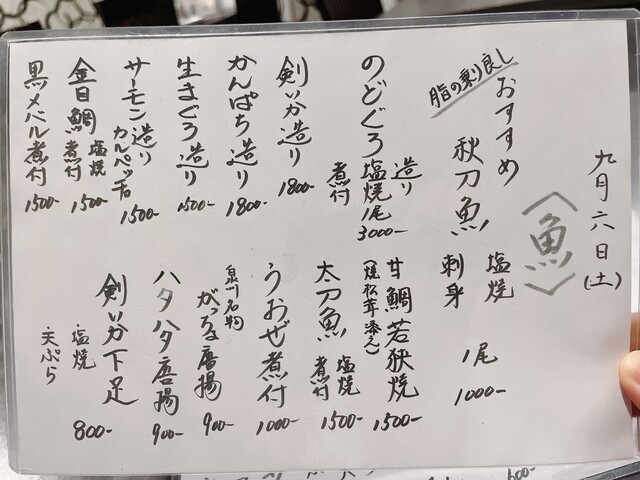 九月六日(土)
〈魚〉
おすすめ
脂の乗り良し
秋刀魚 塩焼 刺身 1尾 1000-
のどぐろ 造り 塩焼 煮付 1尾 3000-
剣いか造り 1800-
かんぱち造り 1800-
生まぐろ造り 1500-
サーモン造り カルパッチョ 1500-
金目鯛 塩焼 煮付 1500-
黒メバル煮付 1500-
甘鯛若狭焼 1500-
(焼松茸添え)
太刀魚 塩焼 煮付 1500-
うおぜ煮付 1000-
泉州名物
がっちょ唐揚 900-
ハタハタ唐揚 900-
剣いか下足 塩焼 天ぷら 800-
600-